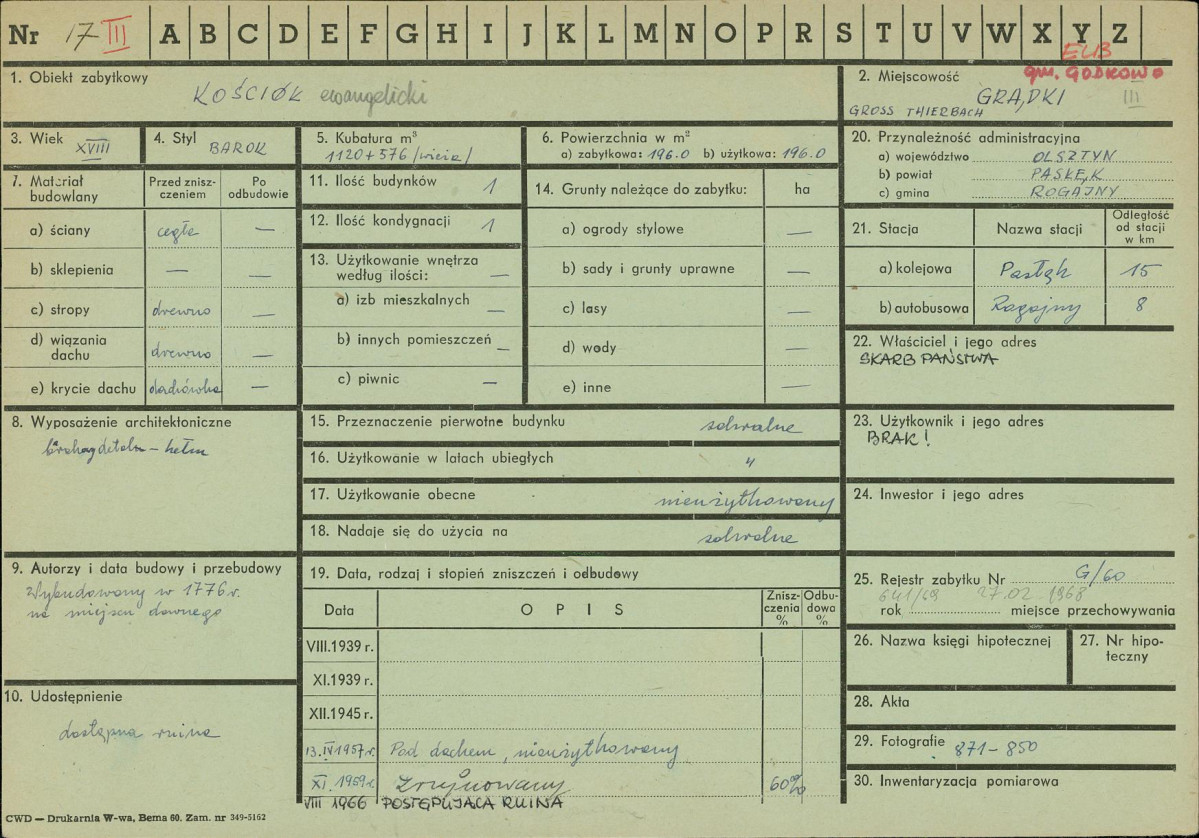 Nr 17 III A B C D E F G H I J K L M N O P R S T U V W X Y Z
EUB
gm. GODKOWO
1. Obiekt zabytkowy
KOŚCIÓŁ ewangelicki
2. Miejscowość
GRĄDKI III
GROSS THIERBACH
3. Wiek XVIII
4. Styl BAROK
5. Kubatura m³
1120 + 576 /wieża/
6. Powierzchnia w m²
a) zabytkowa: 196.0 b) użytkowa: 196.0
20. Przynależność administracyjna
a) województwo OLSZTYN
b) powiat PASŁĘK
c) gmina ROGAJNY
7. Materiał budowlany
Przed zniszczeniem
Po odbudowie
a) ściany cegła —
b) sklepienia — —
c) stropy drewno —
d) wiązania dachu drewno —
e) krycie dachu dachówka —
11. Ilość budynków 1
12. Ilość kondygnacji 1
13. Użytkowanie wnętrza według ilości: —
a) izb mieszkalnych —
b) innych pomieszczeń —
c) piwnic —
14. Grunty należące do zabytku: ha
a) ogrody stylowe —
b) sady i grunty uprawne —
c) lasy —
d) wody —
e) inne —
21. Stacja Nazwa stacji Odległość od stacji w km
a) kolejowa Pasłęk 15
b) autobusowa Rogajny 8
22. Właściciel i jego adres
SKARB PAŃSTWA
8. Wyposażenie architektoniczne
– hełm
15. Przeznaczenie pierwotne budynku sakralne
16. Użytkowanie w latach ubiegłych "
17. Użytkowanie obecne nieużytkowany
18. Nadaje się do użycia na sakralne
23. Użytkownik i jego adres
BRAK!
24. Inwestor i jego adres
9. Autorzy i data budowy i przebudowy
Wybudowany w 1776 r.
na miejscu dawnego
10. Udostępnienie
dostępna ruina
19. Data, rodzaj i stopień zniszczeń i odbudowy
Data OPIS Zniszczenia % Odbudowa %
VIII.1939 r.
XI.1939 r.
XII.1945 r.
13.IV.1957 r. Pod dachem, nieużytkowany
XI.1959 r. Zrujnowany 60%
VIII 1966 POSTĘPUJĄCA RUINA
25. Rejestr zabytku Nr G/60
641/68 27.02.1968
rok miejsce przechowywania
26. Nazwa księgi hipotecznej
27. Nr hipoteczny
28. Akta
29. Fotografie 871–850
30. Inwentaryzacja pomiarowa
CWD — Drukarnia W-wa, Bema 60. Zam. nr 349-5162